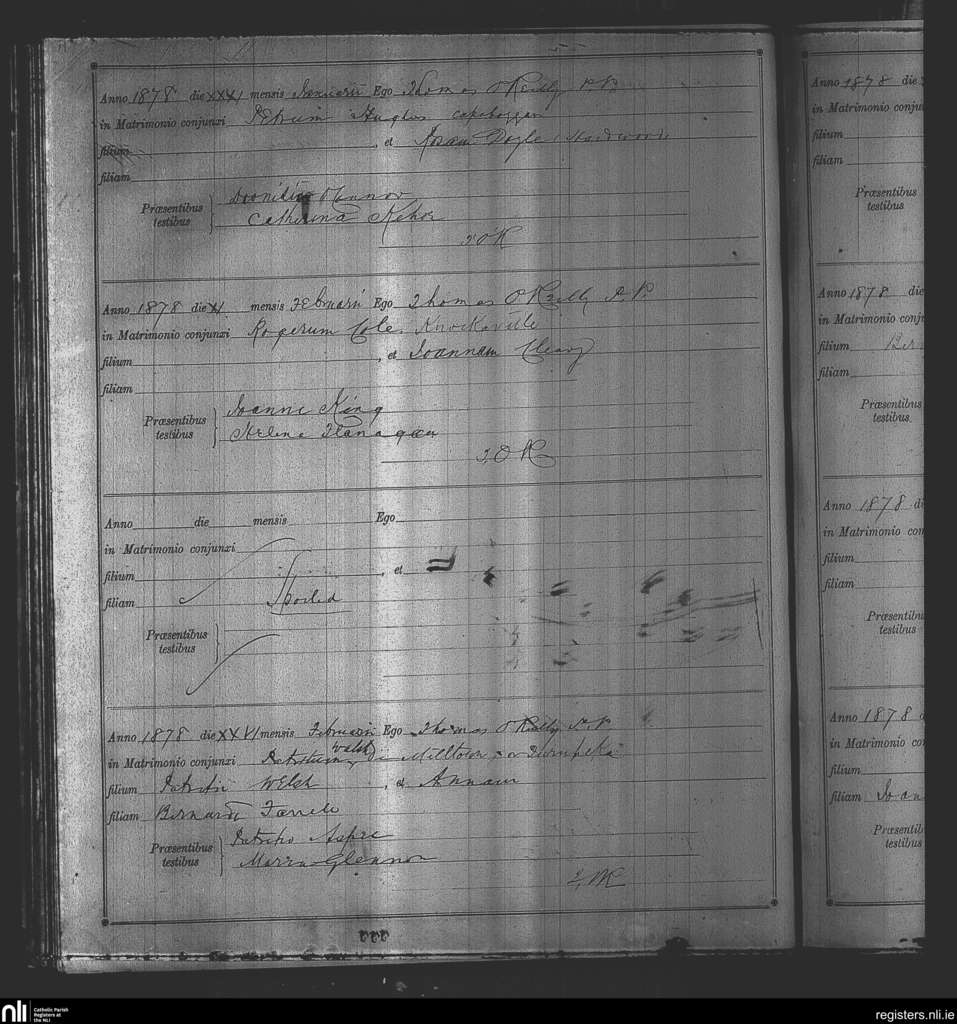 Anno 1878 die XXXI mensis Januarii Ego Thomas O'Reilly P.P.
in Matrimonio conjunxi Petrum Hughes
filium , et Doyle Hardwood
filiam
Præsentibus testibus
O'Connor
Catherina Kehoe
T. O'R
Anno 1878 die XI mensis Februarii Ego Thomas O'Reilly P.P.
in Matrimonio conjunxi Rogerum Cole Knockaville
filium , et Joannam Cleary
filiam
Præsentibus testibus
Joanne King
Helena Flanagan
T. O R
Anno die mensis Ego
in Matrimonio conjunxi
filium , et
filiam Spoiled
Præsentibus testibus
Anno 1878 die XXVI mensis Februarii Ego Thomas O'Reilly P.P.
Walsh
in Matrimonio conjunxi Patritium Di Milltown
filium Patritii Welsh , et Annam
filiam Bernardi
Præsentibus testibus
Patritio
Maria Glennon
Anno 1878 die
in Matrimonio conju
filium
filiam
Præsentibus
testibus
Anno 1878 die
in Matrimonio conj
filium Ber
filiam
Præsentibus
testibus
Anno 1878 di
in Matrimonio con
filium
filiam
Præsentibu
testibus
Anno 1878
in Matrimonio co
filium
filiam Joan
Præsentib
testibus
nli Catholic Parish
Registers at
the NLI
registers.nli.ie